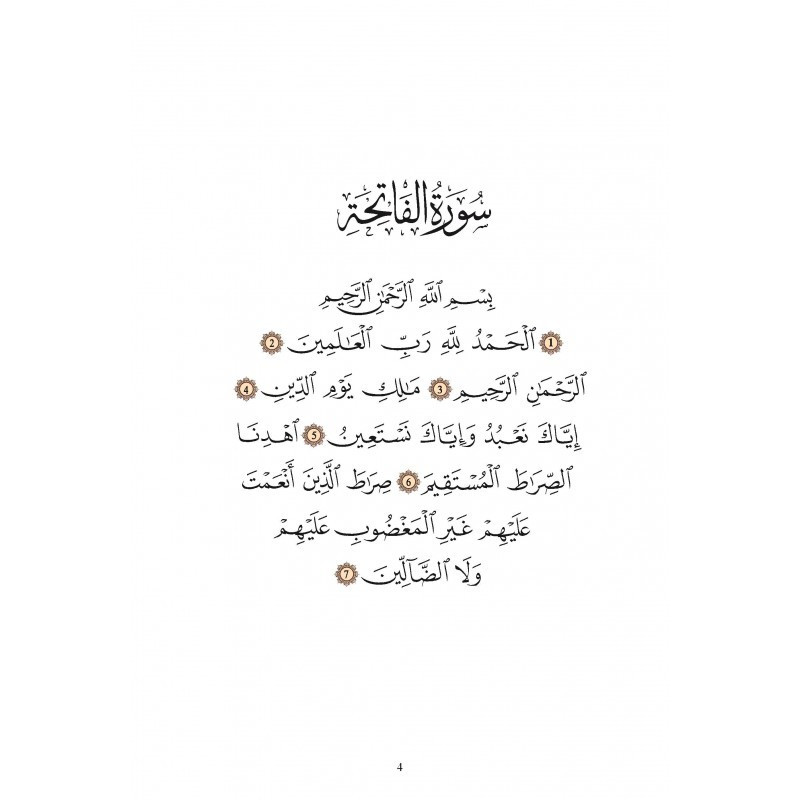 سُورَةُ الفَاتِحَةِ
بِسْمِ ٱللَّهِ ٱلرَّحْمَٰنِ ٱلرَّحِيمِ
1 ٱلْحَمْدُ لِلَّهِ رَبِّ ٱلْعَٰلَمِينَ 2
ٱلرَّحْمَٰنِ ٱلرَّحِيمِ 3 مَٰلِكِ يَوْمِ ٱلدِّينِ 4
إِيَّاكَ نَعْبُدُ وَإِيَّاكَ نَسْتَعِينُ 5 ٱهْدِنَا
ٱلصِّرَٰطَ ٱلْمُسْتَقِيمَ 6 صِرَٰطَ ٱلَّذِينَ أَنْعَمْتَ
عَلَيْهِمْ غَيْرِ ٱلْمَغْضُوبِ عَلَيْهِمْ
وَلَا ٱلضَّآلِّينَ 7
4